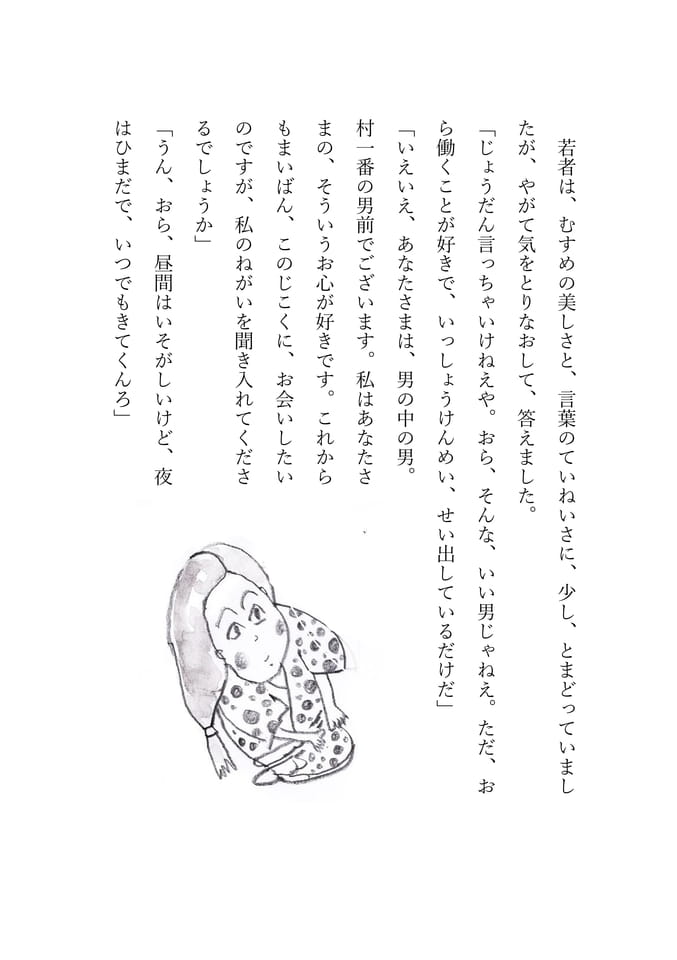 若者は、むすめの美しさと、言葉のていねいさに、少し、とまどっていまし
たが、やがて気をとりなおして、答えました。
「じょうだん言っちゃいけねえや。おら、そんな、いい男じゃねえ。ただ、お
ら働くことが好きで、いっしょうけんめい、せい出しているだけだ」
「いえいえ、あなたさまは、男の中の男。
村一番の男前でございます。私はあなたさ
まの、そういうお心が好きです。これから
もまいばん、このじこくに、お会いしたい
のですが、私のねがいを聞き入れてくださ
るでしょうか」
「うん、おら、昼間はいそがしいけど、夜
はひまだで、いつでもきてくんろ」